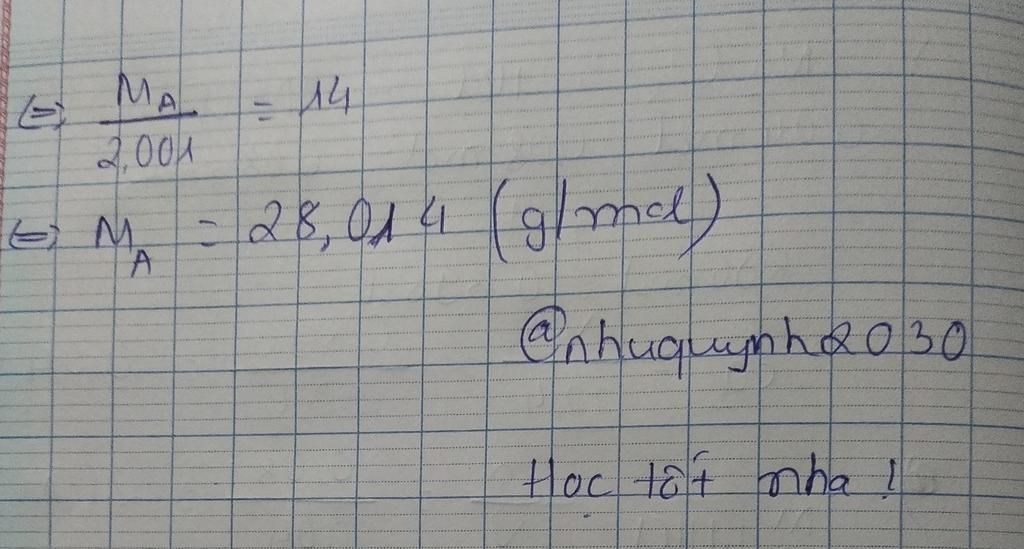 ⇔ M_A / 2,001 = 14
⇔ M_A = 28,014 (g/mol)
@nhuquynh2030
Học tốt nha !